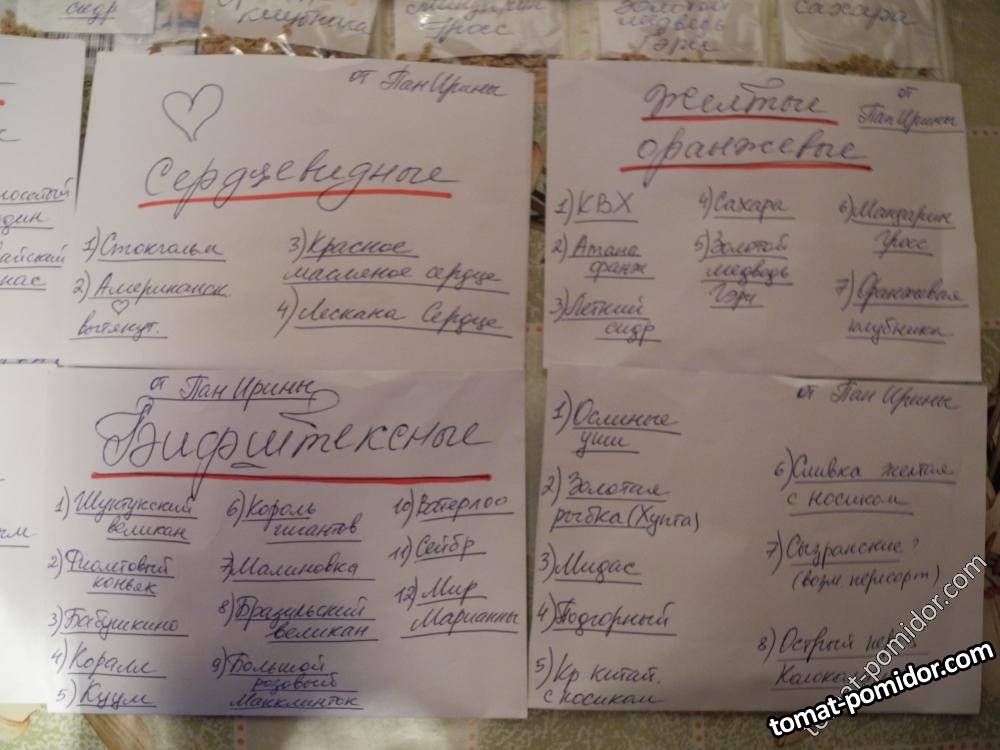 сидр
клубника
Гросс
Золотой
медведь
Гэри
Сахара
от Пан Ирины
Сердцевидные
1) Стокгольм
2) Американск.
вытянут.
3) Красное
масляное сердце
4) Лескана Сердце
от
Пан Ирины
Желтые
оранжевые
1) КВХ
2) Амана
оранж
3) Летний
сидр
4) Сахара
5) Золотой
медведь
Гэри
6) Мандарин
Гросс
7) Оранжевая
клубника
от Пан Ирины
Бифштексные
1) Шунтукский
великан
2) Фиолетовый
коньяк
3) Бабушкино
4) Коралл
5) Куум
6) Король
гигантов
7) Малиновка
8) Бразильский
великан
9) Большой
розовый
Макклинток
10) Ватерлоо
11) Сейбр
12) Мир
Марианны
от Пан Ирины
1) Ослиные
уши
2) Золотая
рыбка (Хунта)
3) Мидас
4) Подгорный
5) Кр. китай.
с носиком
6) Сливка желтая
с носиком
7) Сызранские?
(возм пересорт)
8) Острый
tomat-pomidor.com
tomat-pomidor.com